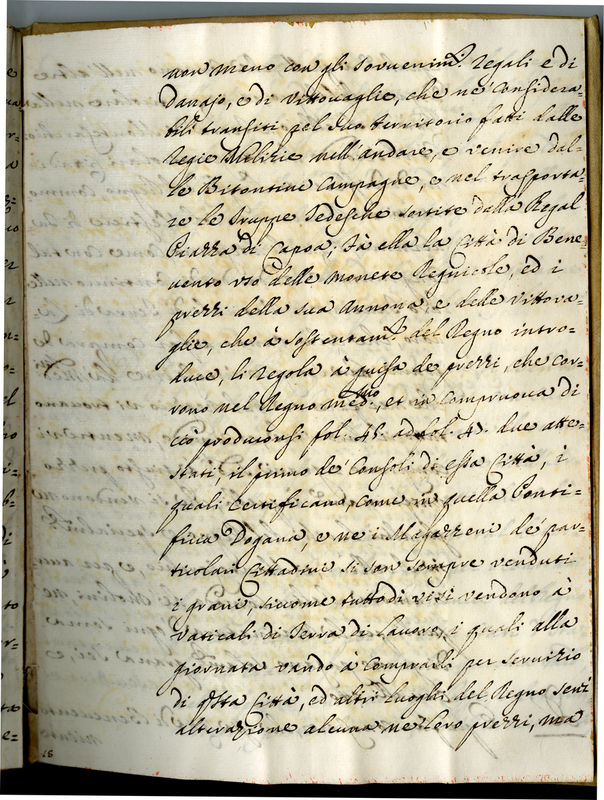 non meno con gli sovvenim.ti regali e di
Danajo, e di vittovaglie, che ne considera-
bili transiti pel suo territorio fatti dalle
Regie Milizie nell'andare, e venire dal-
le Bitontine Campagne, e nel trasporta-
re le Truppe Tedesche sortite dalla Regal
Piazza di Capoa; Fà ella la Città di Bene
vento uso delle monete Regnicole, ed i
prezzi della sua Annona, e delle vittova-
glie, che à sostentam.to del Regno intro-
duce, li regola à guisa de prezzi, che cor-
rono nel Regno med.mo, et in compruova di
ciò produconsi fol. 45. ad fol. 47. due atte-
stati, il primo de' Consoli di essa Città, i
quali certificano, come in quella Ponti-
ficia Dogana, e ne i Magazzeni de par-
ticolari Cittadini si son sempre venduti
i grani, siccome tuttodì visi vendono à
vaticali di Terra di Lavoro, i quali alla
giornata vando à comprarli per servizio
di q.sta Città, ed altri luoghi del Regno senz'
alterazione alcuna ne loro prezzi, ma
18